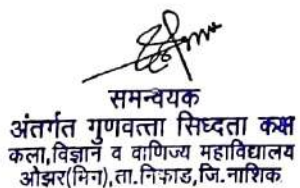 समन्वयक
अंतर्गत गुणवत्ता सिध्दता कक्ष
कला,विज्ञान व वाणिज्य महाविद्यालय
ओझर(मिग),ता.निफाड,जि.नाशिक